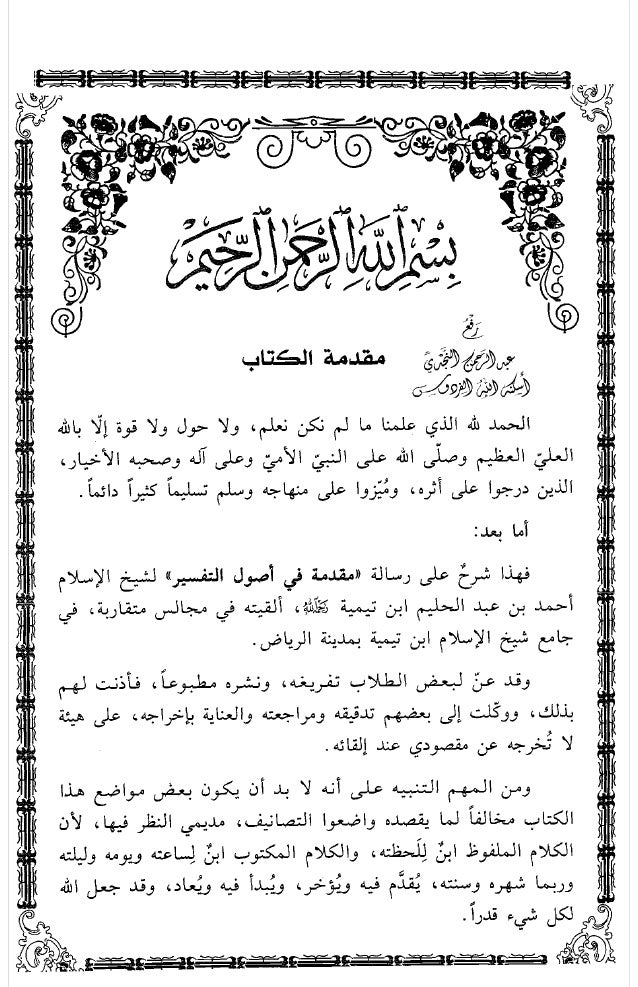 بِسْمِ اللهِ الرَّحْمٰنِ الرَّحِيمِ
رَفْعُ
عبد الرحمن النجدي
أسكنه الله الفردوس
مقدمة الكتاب
الحمد لله الذي علمنا ما لم نكن نعلم، ولا حول ولا قوة إلّا بالله
العليّ العظيم وصلّى الله على النبيّ الأميّ وعلى آله وصحبه الأخيار،
الذين درجوا على أثره، ومُيّزوا على منهاجه وسلم تسليماً كثيراً دائماً.
أما بعد:
فهذا شرحٌ على رسالة «مقدمة في أصول التفسير» لشيخ الإسلام
أحمد بن عبد الحليم ابن تيمية رحمه الله، ألقيته في مجالس متقاربة، في
جامع شيخ الإسلام ابن تيمية بمدينة الرياض.
وقد عنّ لبعض الطلاب تفريغه، ونشره مطبوعاً، فأذنت لهم
بذلك، ووكّلت إلى بعضهم تدقيقه ومراجعته والعناية بإخراجه، على هيئة
لا تُخرجه عن مقصودي عند إلقائه.
ومن المهم التنبيه على أنه لا بد أن يكون بعض مواضع هذا
الكتاب مخالفاً لما يقصده واضعوا التصانيف، مديمي النظر فيها، لأن
الكلام الملفوظ ابنٌ لِلَحظته، والكلام المكتوب ابنٌ لِساعته ويومه وليلته
وربما شهره وسنته، يُقدَّم فيه ويُؤخر، ويُبدأ فيه ويُعاد، وقد جعل الله
لكل شيء قدراً.